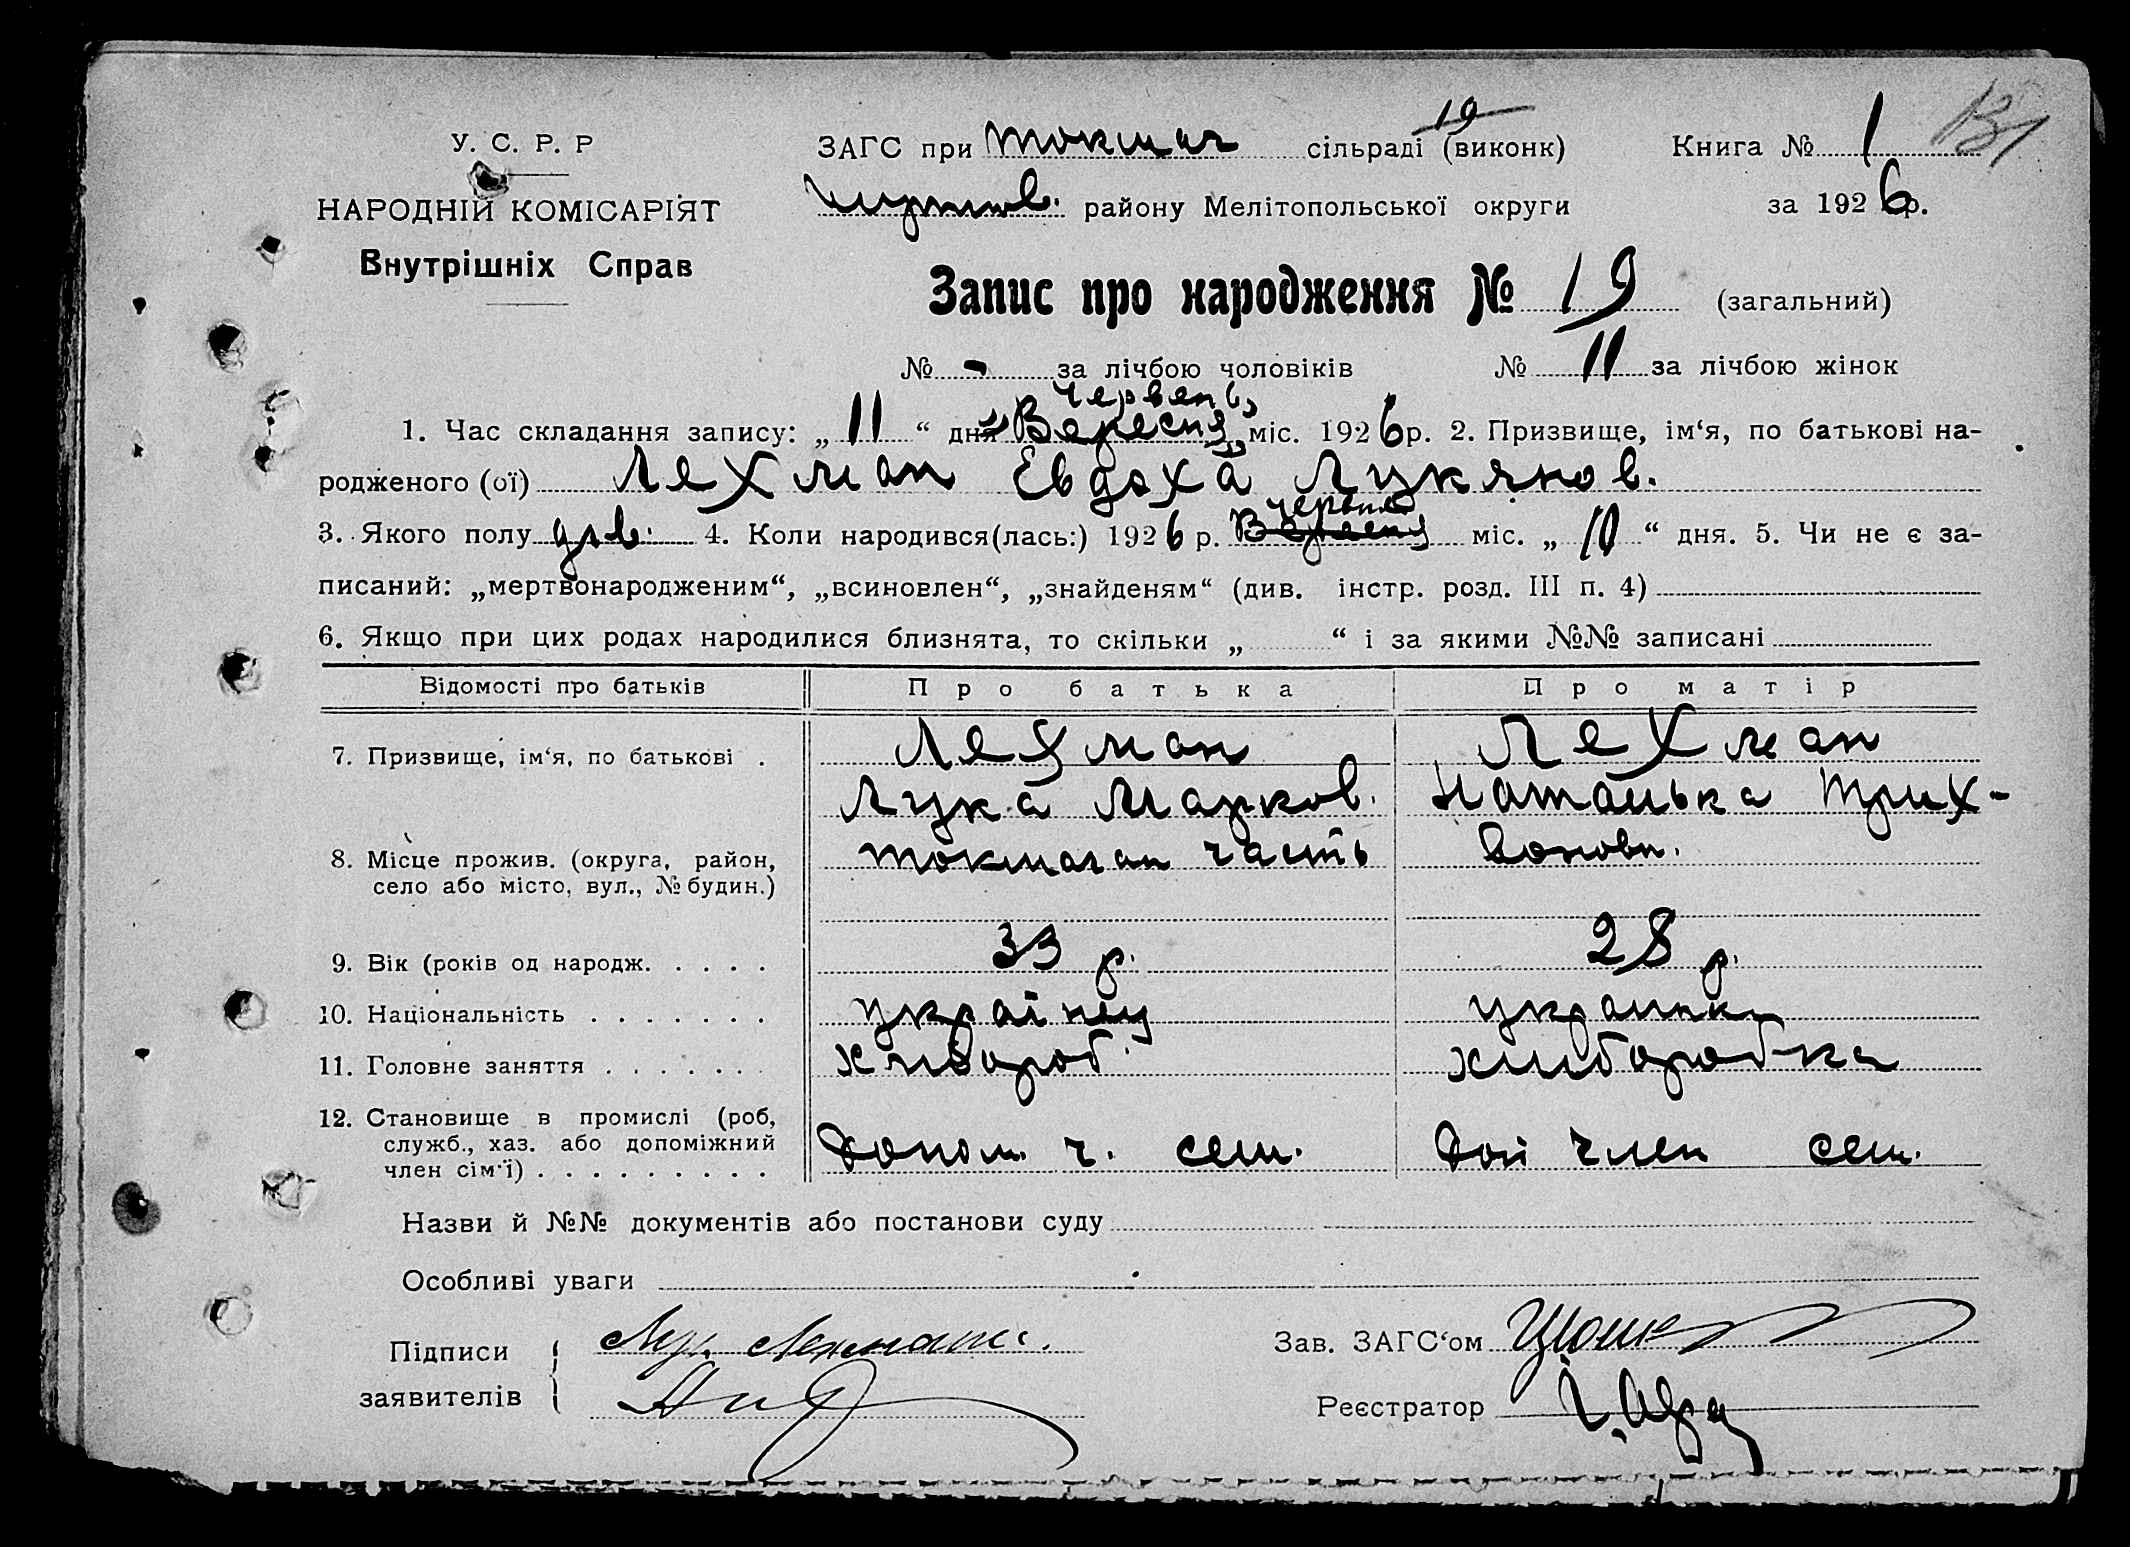 19
У. С. Р. Р ЗАГС при Токмач сільраді (виконк) Книга № 1
НАРОДНІЙ КОМІСАРІЯТ району Мелітопольської округи за 1926 р.
Внутрішніх Справ
Запис про народження № 19 (загальний)
№ - за лічбою чоловіків № 11 за лічбою жінок
Червень
1. Час складання запису: „ 11 “ дня Вересня міс. 1926 р. 2. Призвище, ім‘я, по батькові на-
родженого (ої) Лехман Евдоха Лукянов.
червня
3. Якого полу дів. 4. Коли народився(лась:) 1926 р. Вересня міс. „ 10 “ дня. 5. Чи не є за-
писаний: „мертвонародженим“, „всиновлен“, „знайденям“ (див. інстр. розд. III п. 4)
6. Якщо при цих родах народилися близнята, то скільки „ “ і за якими №№ записані
Відомості про батьків Про батька Про матір
7. Призвище, ім‘я, по батькові . Лехман Лехман
Лука Марков. Наталька Трих-
8. Місце прожив. (округа, район, часть
село або місто, вул., № будин.)
9. Вік (років од народж. . . . . 33 р. 28 р.
10. Національність . . . . . . . українец украинка
11. Головне заняття . . . . . . . хлібороб. хлиборобка
12. Становище в промислі (роб,
служб., хаз. або допоміжний
член сім‘ї) . . . . . . . . . Допом. ч. сем. член сем.
Назви й №№ документів або постанови суду
Особливі уваги
Підписи Зав. ЗАГС‘ом
заявителів Реєстратор